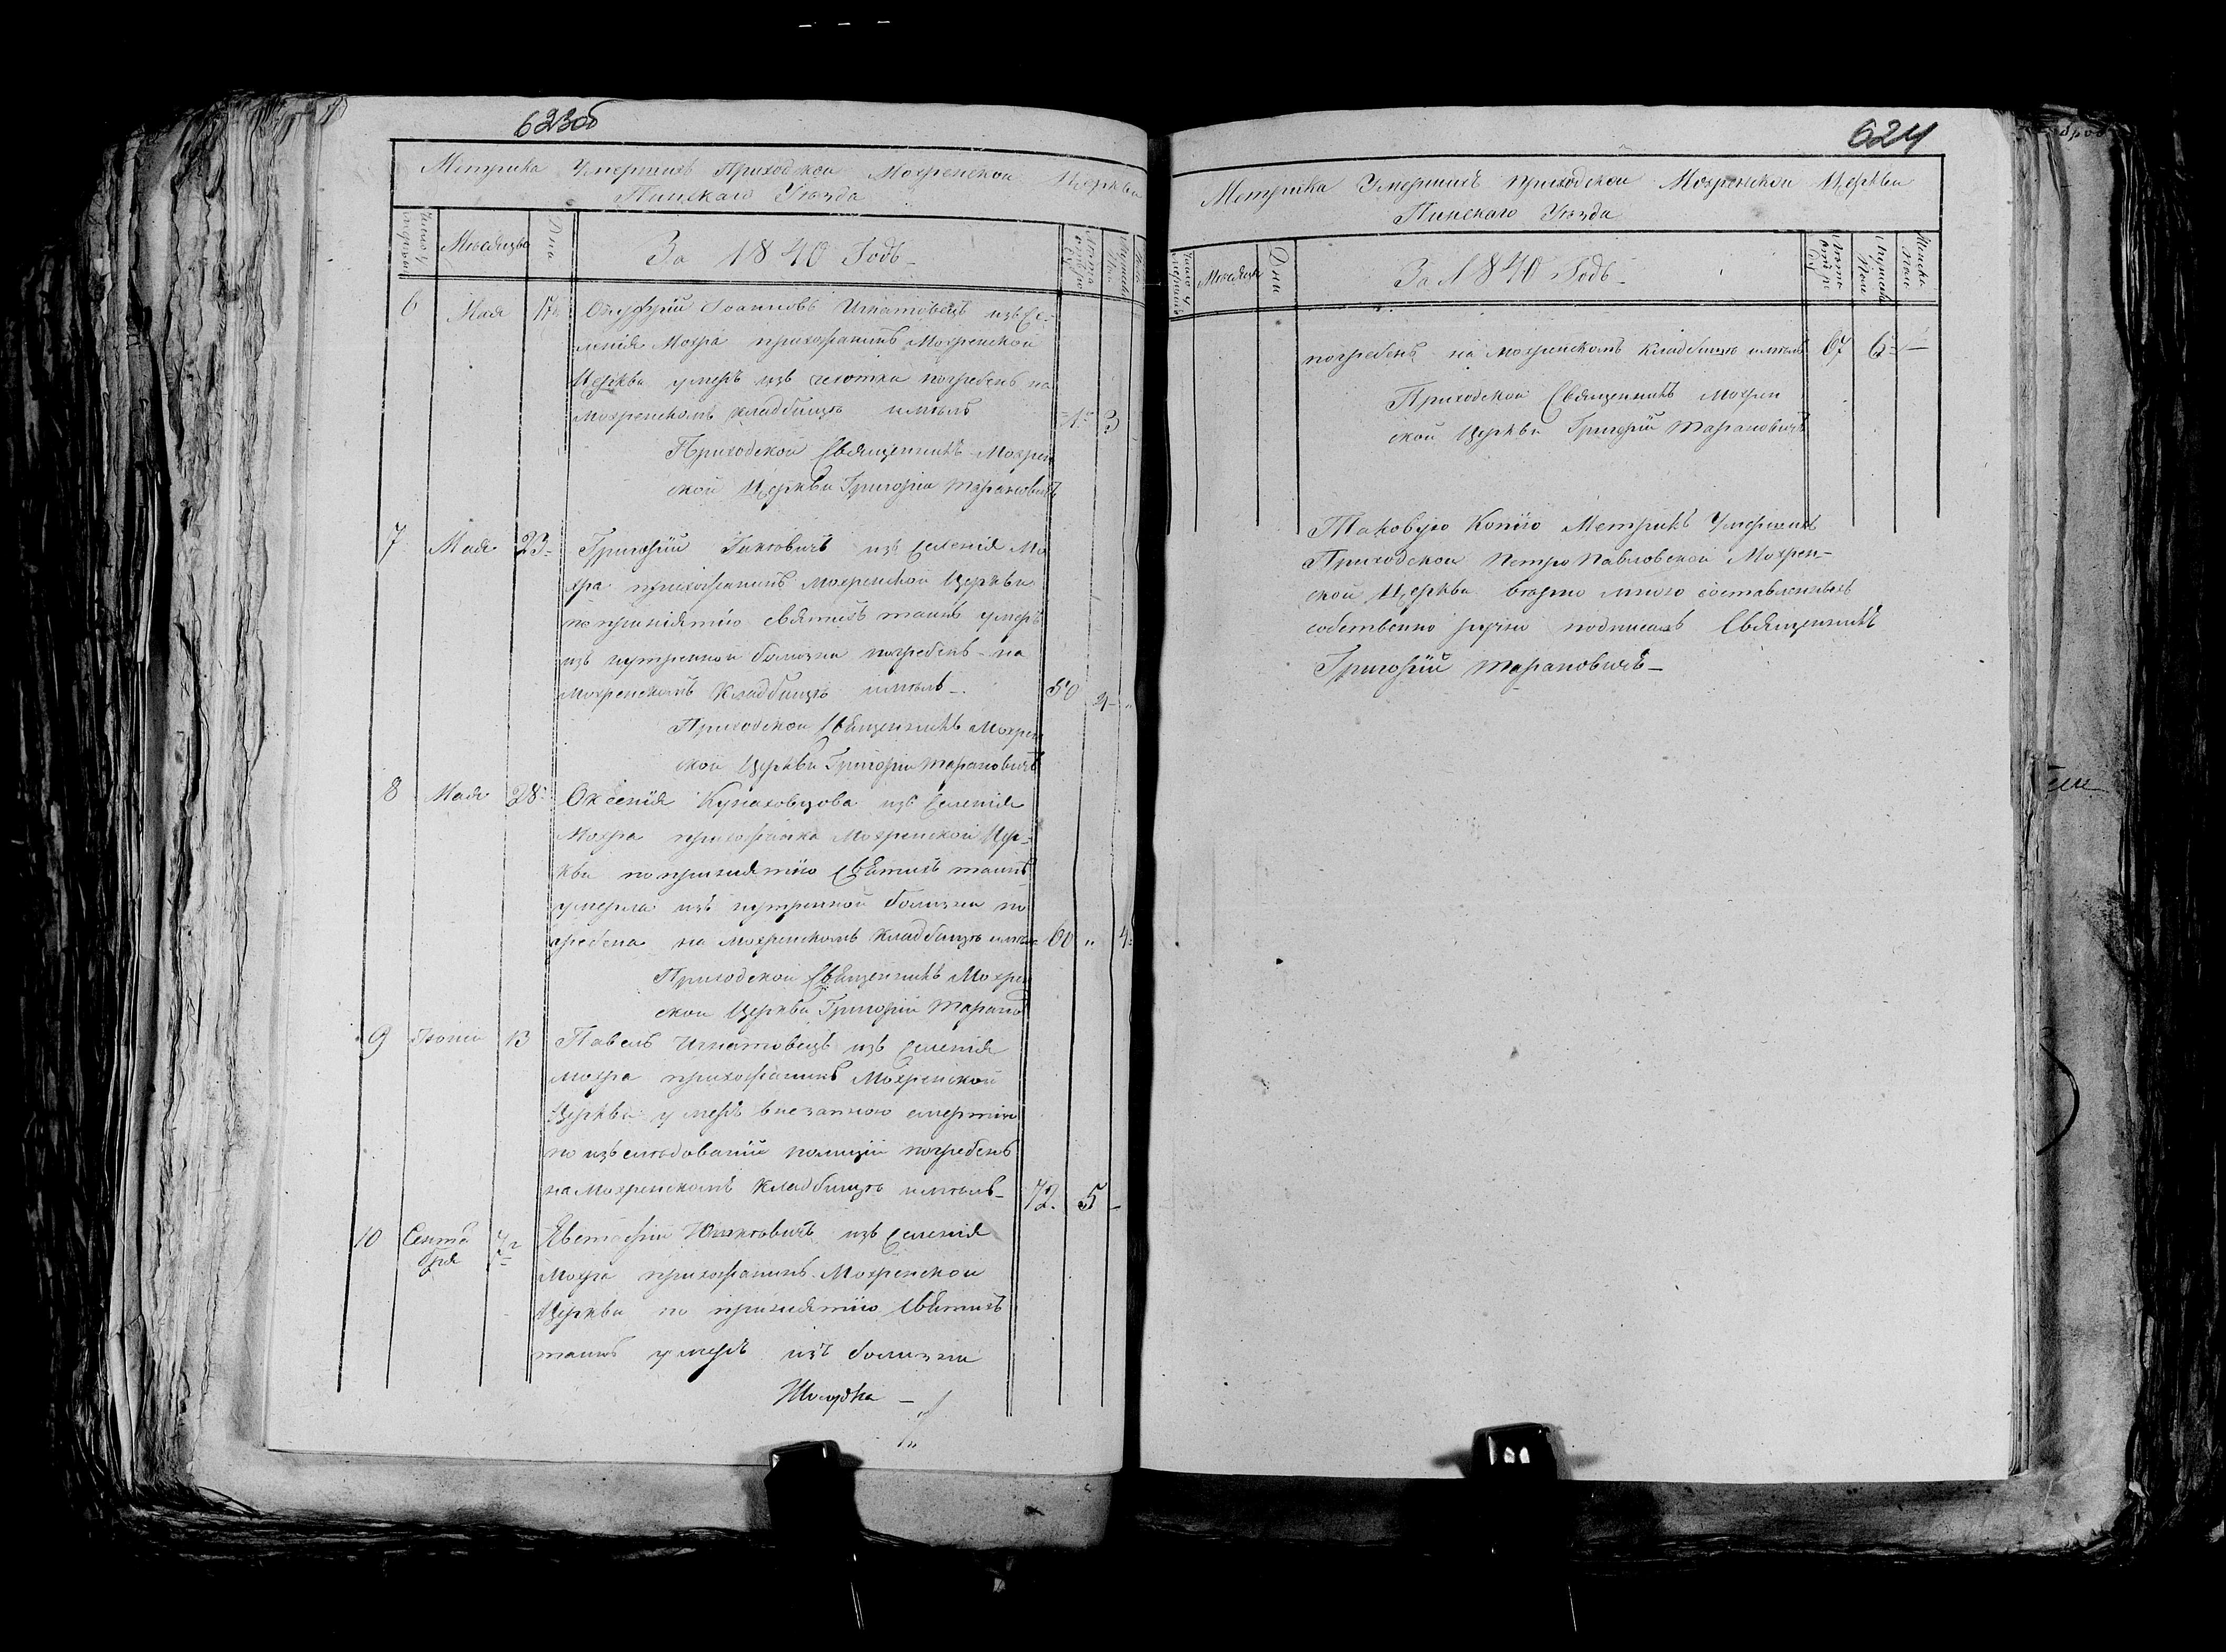 623об
Метрика Умершихъ Приходской Мохренской Церкви
Пинскаго Уѣзда
Месяцъ Дна За 1840 Годъ
6 Мая 17 Іоанновъ Игнатовецъ изъ Се-
ленія Мохра прихожанинъ Мохренской
Церкви умеръ изъ чехотки погребенъ на
Мохренскомъ кладбищѣ имѣлъ 1 3
Приходской Священникъ Мохрен
ской Церкви Григорій Тарановичъ
7 Мая 23 Григорій изъ Селенія Мо
хра прихожанинъ Мохренской Церкви
по принятію святихъ таинъ умеръ
изъ нутренной болизни погребенъ на
Мохренскомъ Кладбищѣ имѣлъ 50 4
Приходской Священникъ Мохрен
ской Церкви Григорій Тарановичъ
8 Мая 28 Оксенія изъ Селенія
Мохра прихожанка Мохренской Цер-
кви по принятію Святихъ таинъ
умерла изъ нутренной болизни по
гребена на Мохренскомъ Кладбищѣ имѣла 60 " 4
Приходской Священникъ Мохрен
ской Церкви Григорій Таранов
9 Іюнія 13 Павелъ Игнатовецъ изъ Селенія
Мохра прихожанинъ Мохренской
Церкви умеръ внезапною смертію
по изслѣдованіи полиціи погребенъ
на Мохренскомъ Кладбищѣ имѣлъ 72 5
10 Сентя
бря 7 изъ Селенія
Мохра прихожанинъ Мохренской
Церкви по принятію Святихъ
таинъ умеръ изъ болизни
Жолудка
624
Метрика Умершихъ Приходской Мохренской Церкви
Пинскаго Уѣзда
Месяцъ Дни За 1840 Годъ
погребенъ на Мохренскомъ Кладбищѣ имѣлъ 67 6
Приходской Священникъ Мохрен
ской Церкви Григорій Тарановичъ
Таковую Копію Метрикъ Умершихъ
Приходской Петро Павловской Мохрен-
ской Церкви вѣрно мною составленныхъ
собственно ручно подписалъ Священникъ
Григорій Тарановичъ